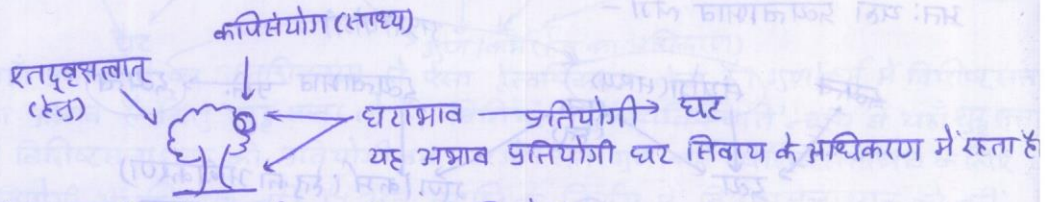 कपिसंयोग (साध्य)
एतद्वृक्षत्वात्
(हेतु)
घटाभाव प्रतियोगी → घट
यह अभाव प्रतियोगी घट सिवाय के अधिकरण में रहता है